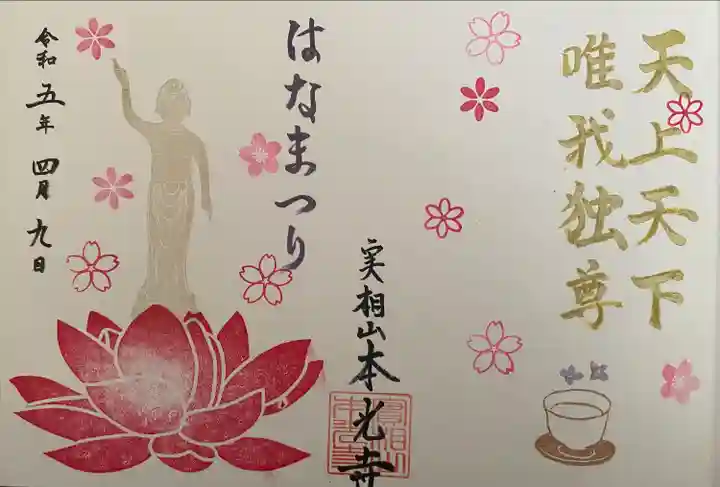 天上天下
唯我独尊
はなまつり
実相山本光寺
令和五年四月九日